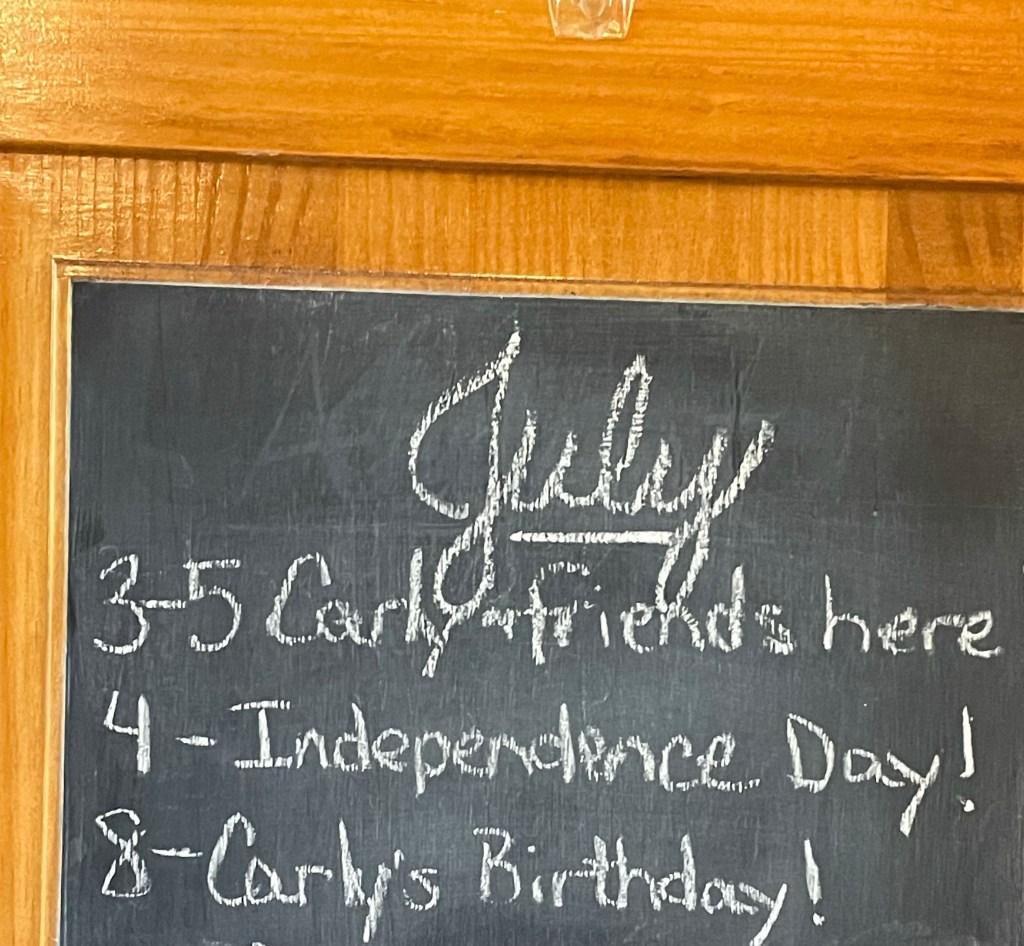 July
3-5 Carly + friends here
4 - Independence Day!
8 - Carly's Birthday!